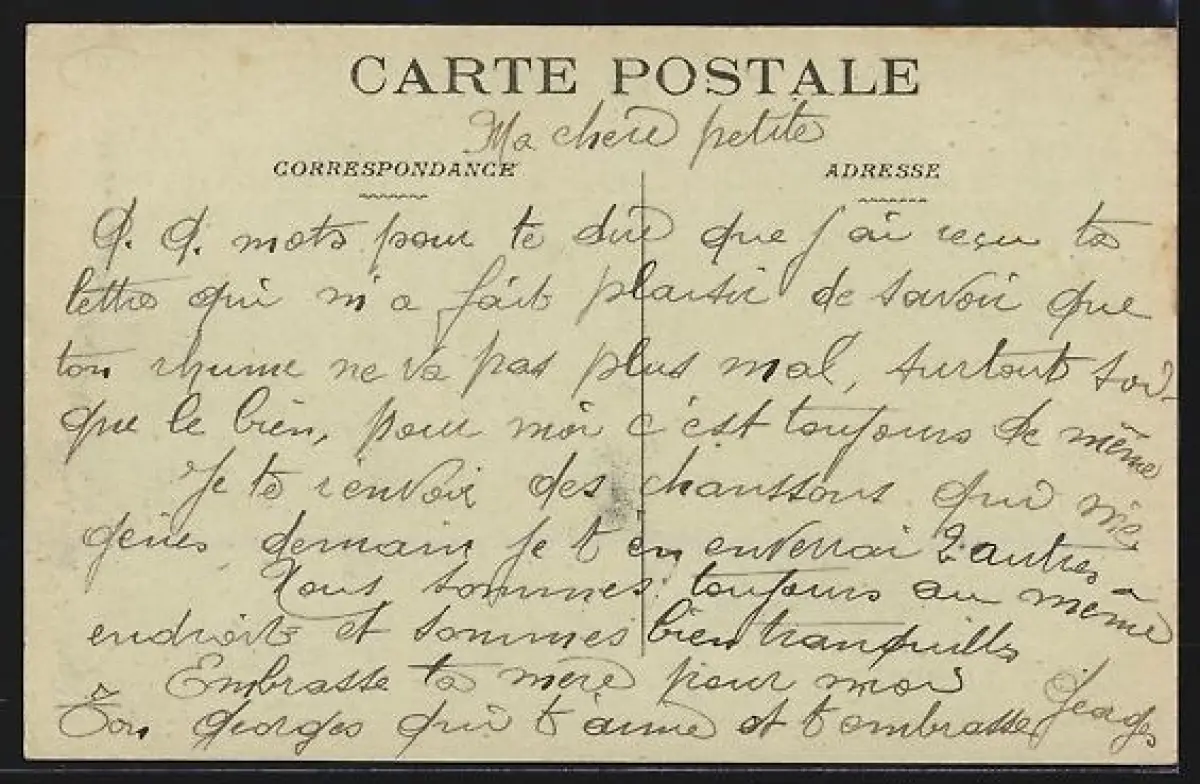 CARTE POSTALE
Ma chère petite
CORRESPONDANCE
ADRESSE
Q. Q. mots pour te dire que j'ai reçu ta
lettre qui m'a fait plaisir de savoir que
ton rhume ne va pas plus mal, surtout soi-
gne le bien, pour moi c'est toujours de même
Je te renvoie des chaussons qui me
gênes demain je t'en enverrai 2 autres
Nous sommes toujours au même
endroit et sommes bien tranquilles
Embrasse ta mère pour moi
Ton Georges qui t'aime et t'embrasse Georges